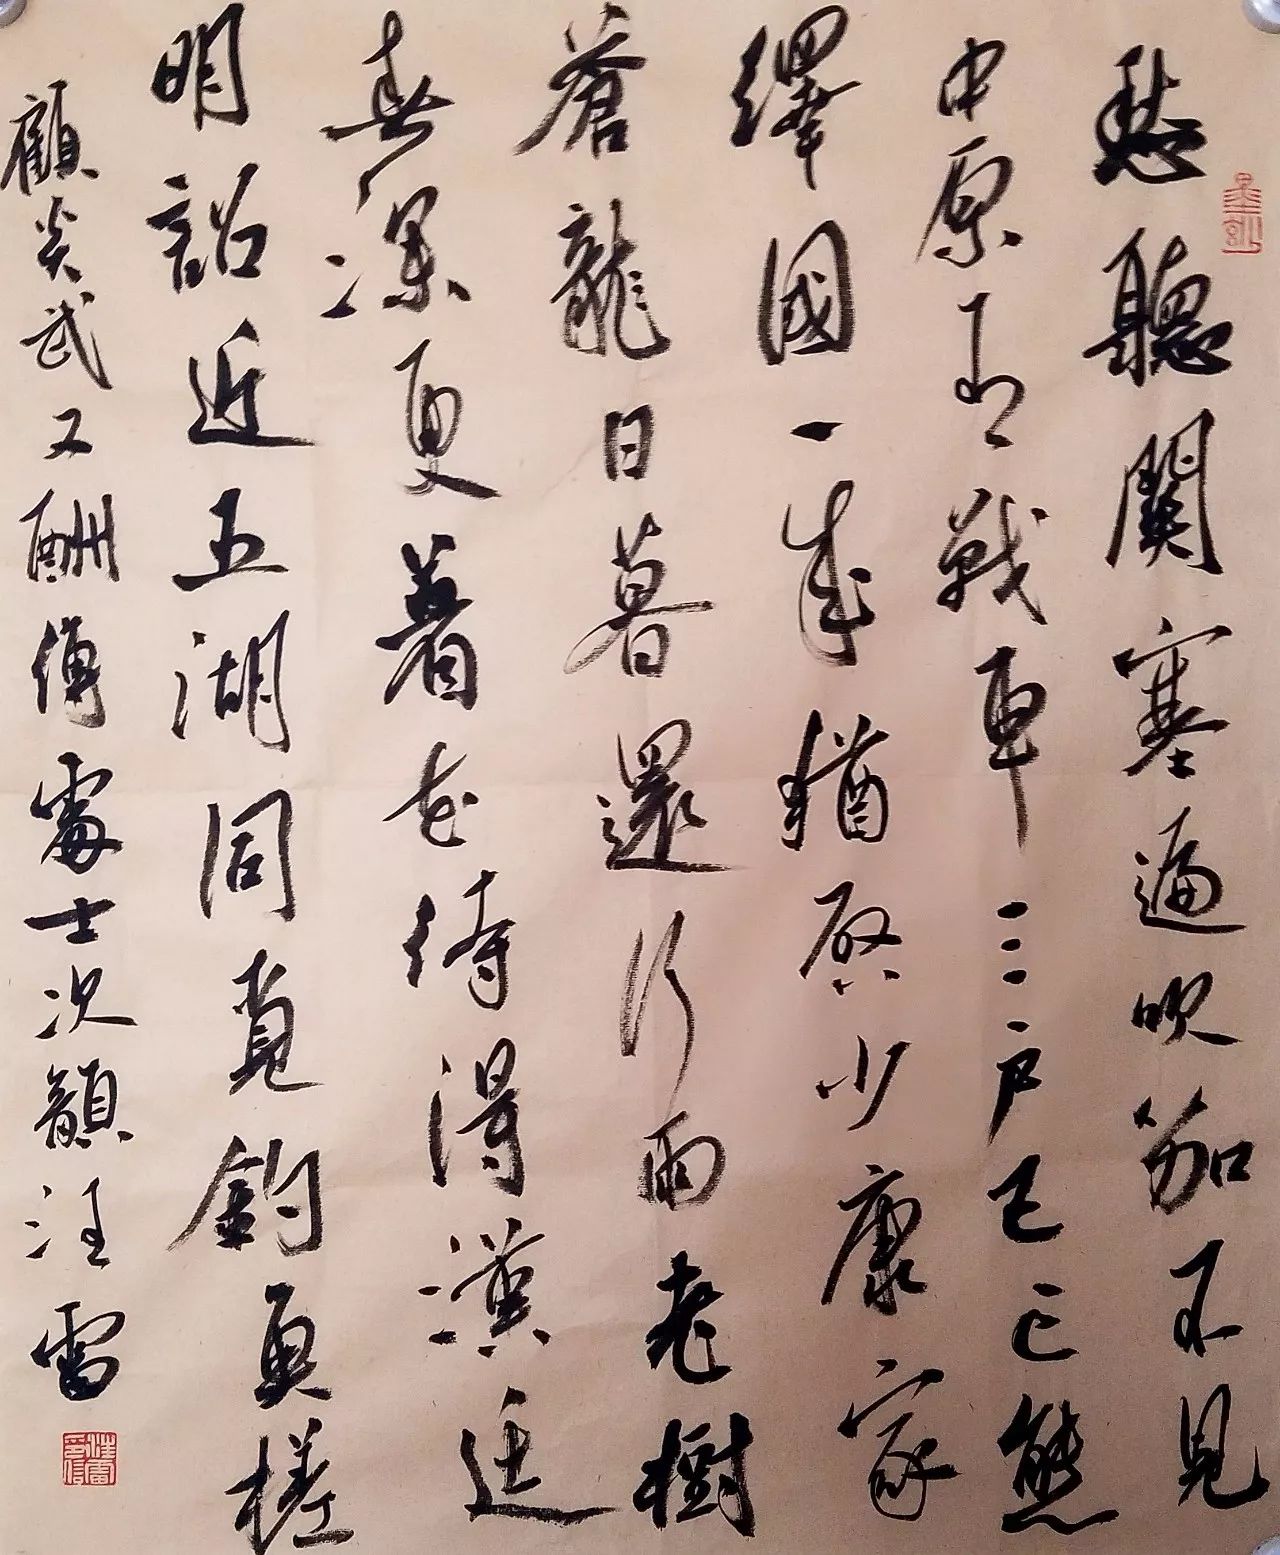 愁聽關塞遍吹笳不見
中原有戰車三戶已亡熊
繹國一成猶啟少康家
蒼龍日暮還行雨老樹
春深更著花待得漢廷
明詔近五湖同覓釣魚槎
顧炎武又酬傅處士次韻汪雷